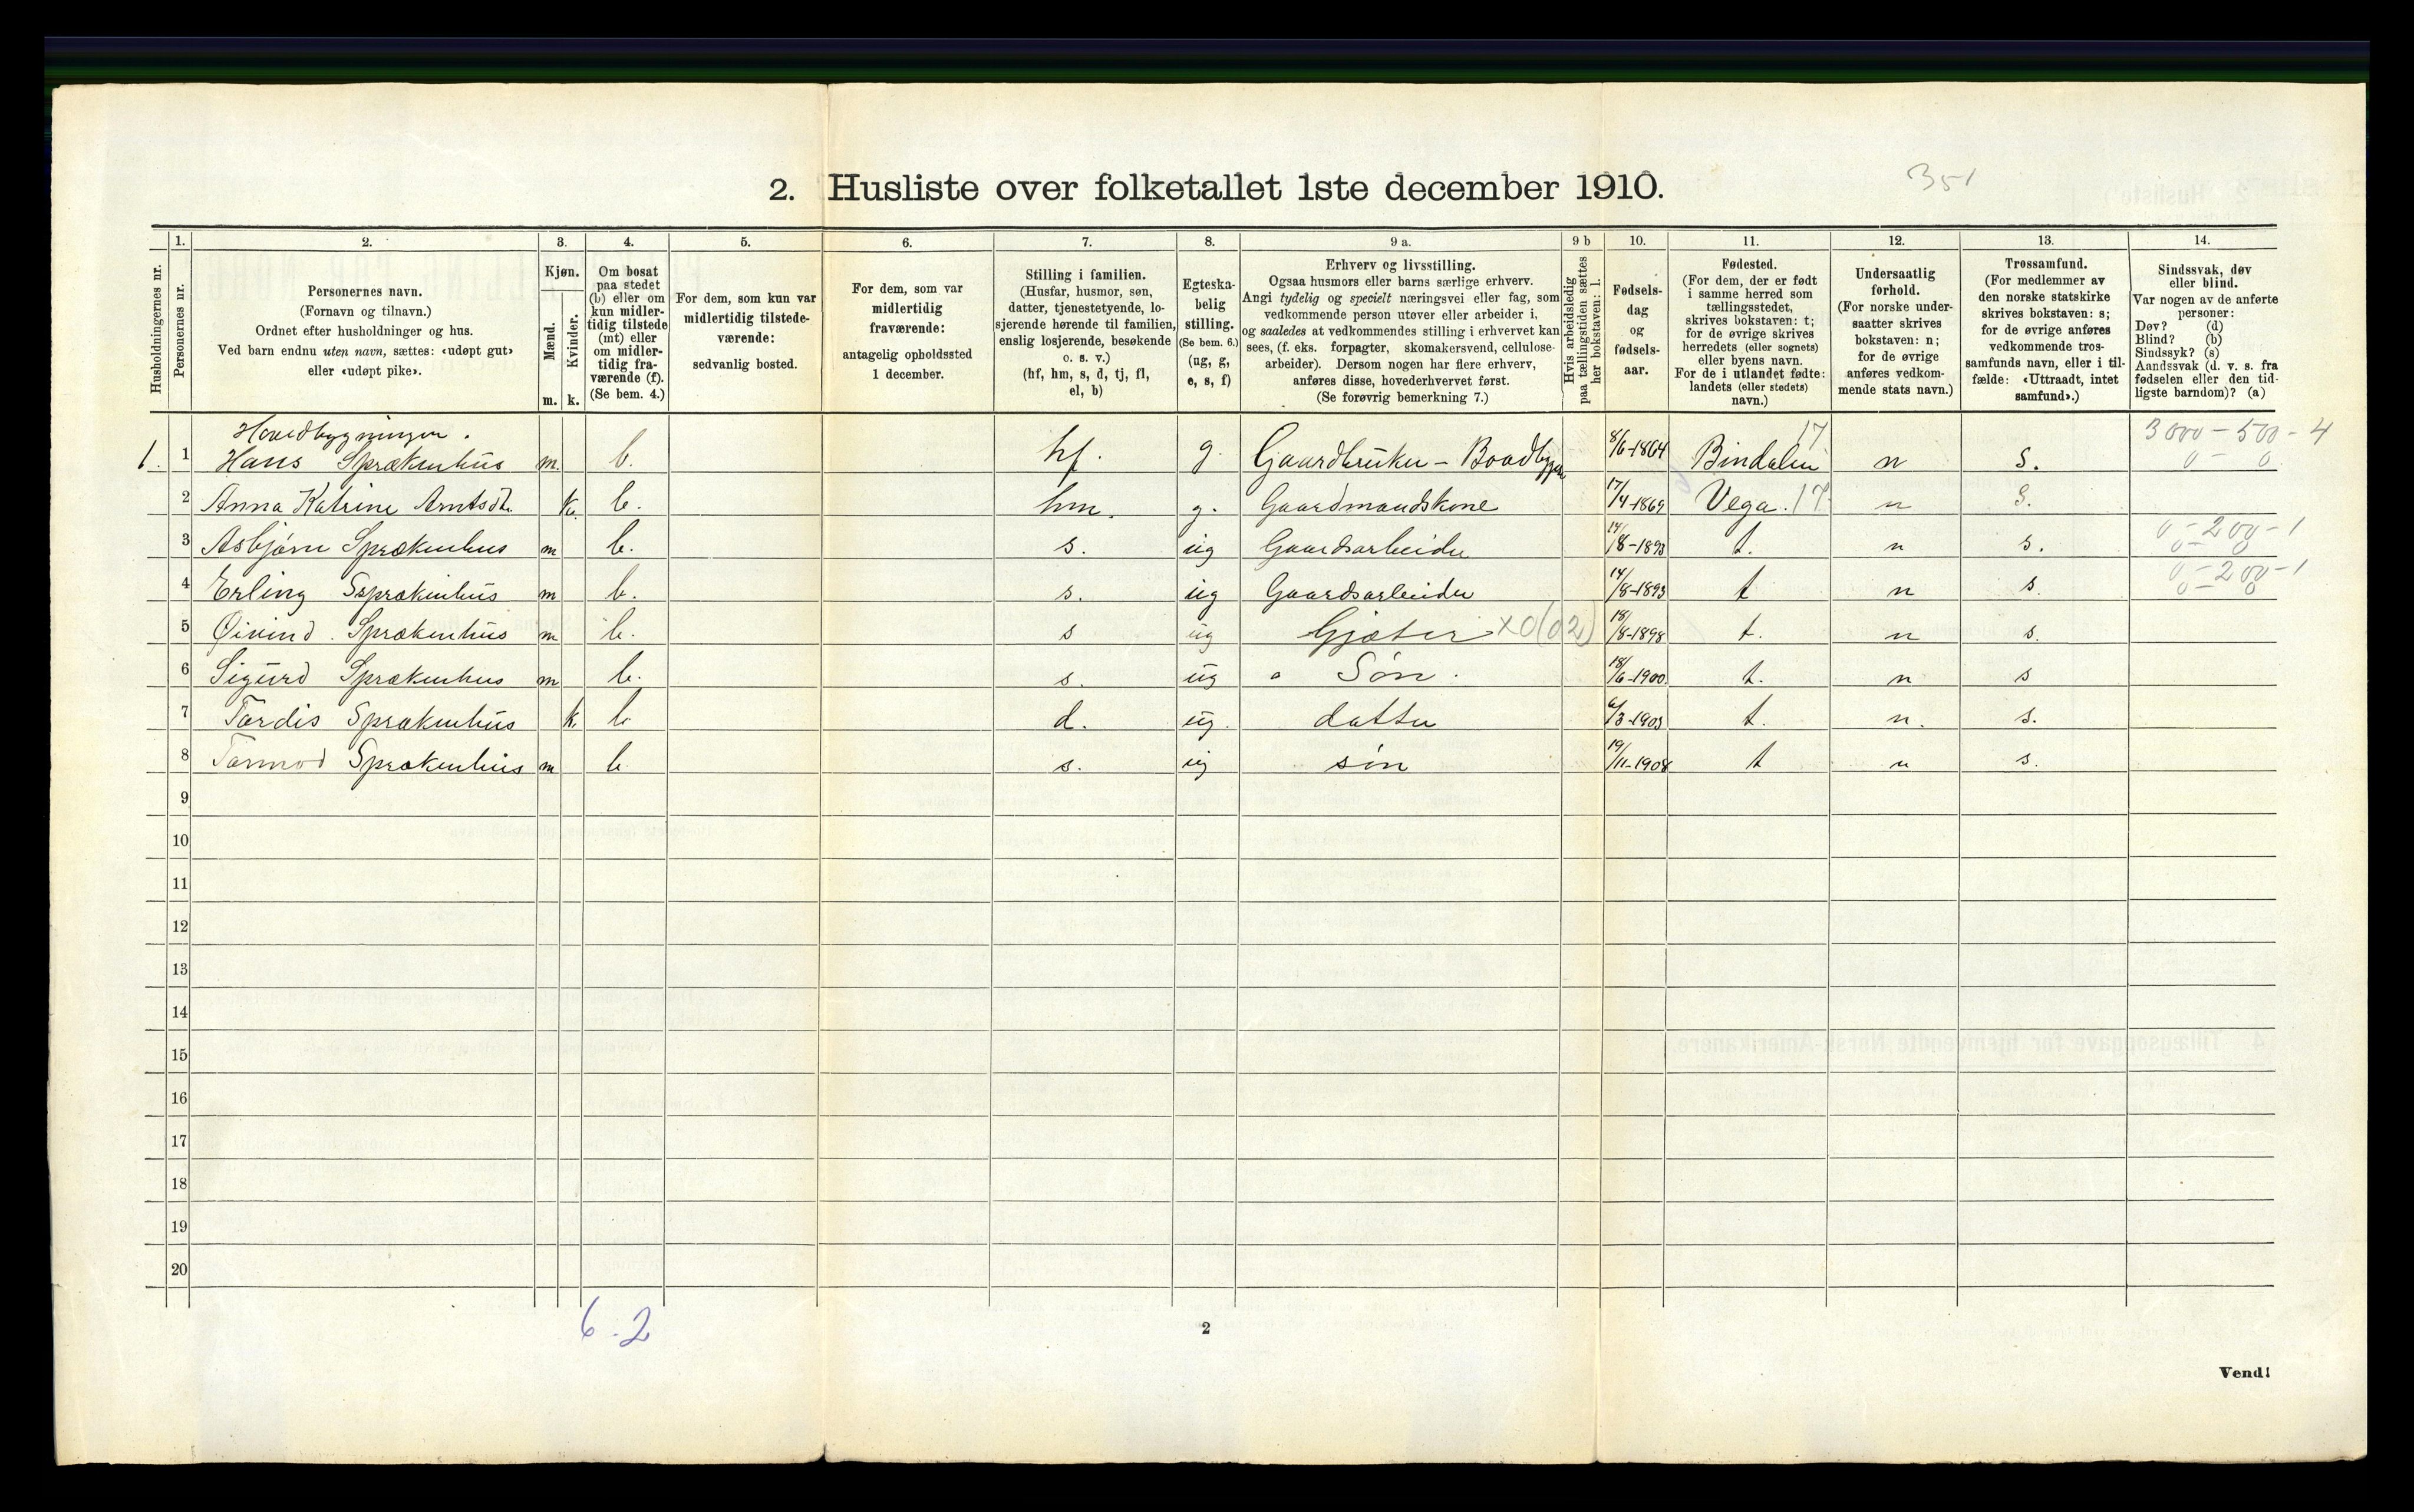 2. Husliste over folketallet 1ste december 1910.
351
1. 2. 3. 4. 5. 6. 7. 8. 9 a. 9 b 10. 11. 12. 13. 14.
Husholdningernes nr.
Personernes nr.
Personernes navn.
(Fornavn og tilnavn.)
Ordnet efter husholdninger og hus.
Ved barn endnu uten navn, sættes: «udøpt gut»
eller «udøpt pike».
Kjøn.
Mænd.
Kvinder.
m. k.
Om bosat
paa stedet
(b) eller om
kun midler-
tidig tilstede
(mt) eller
om midler-
tidig fra-
værende (f).
(Se bem. 4.)
For dem, som kun var
midlertidig tilstede-
værende:
sedvanlig bosted.
For dem, som var
midlertidig
fraværende:
antagelig opholdssted
1 december.
Stilling i familien.
(Husfar, husmor, søn,
datter, tjenestetyende, lo-
sjerende hørende til familien,
enslig losjerende, besøkende
o. s. v.)
(hf, hm, s, d, tj, fl,
el, b)
Egteska-
belig
stilling.
(Se bem. 6.)
(ug, g,
e, s, f)
Erhverv og livsstilling.
Ogsaa husmors eller barns særlige erhverv.
Angi tydelig og specielt næringsvei eller fag, som
vedkommende person utøver eller arbeider i,
og saaledes at vedkommendes stilling i erhvervet kan
sees, (f. eks. forpagter, skomakersvend, cellulose-
arbeider). Dersom nogen har flere erhverv,
anføres disse, hovederhvervet først.
(Se forøvrig bemerkning 7.)
Hvis arbeidsledig
paa tællingstiden sættes
her bokstaven: l.
Fødsels-
dag
og
fødsels-
aar.
Fødested.
(For dem, der er født
i samme herred som
tællingsstedet,
skrives bokstaven: t;
for de øvrige skrives
herredets (eller sognets)
eller byens navn.
For de i utlandet fødte:
landets (eller stedets)
navn.)
Undersaatlig
forhold.
(For norske under-
saatter skrives
bokstaven: n;
for de øvrige
anføres vedkom-
mende stats navn.)
Trossamfund.
(For medlemmer av
den norske statskirke
skrives bokstaven: s;
for de øvrige anføres
vedkommende tros-
samfunds navn, eller i til-
fælde: «Uttraadt, intet
samfund».)
Sindssvak, døv
eller blind.
Var nogen av de anførte
personer:
Døv? (d)
Blind? (b)
Sindssyk? (s)
Aandssvak (d. v. s. fra
fødselen eller den tid-
ligste barndom)? (a)
Hovedbygningen. 17 3000 - 500 - 4
1. 1 Hans Sprækenhus m. b. hf. g. Gaardbruker - Baadbygger 8/6-1864 Bindalen n s. 0 - 0
2 Anna Katrine Arntsdt. k. b. hm. g. Gaardmandskone 17/4-1869 Vega. 17 n s.
0 - 200 - 1
3 Asbjørn Sprækenhus m b. s. ug Gaardsarbeider 14/8-1893 t. n s. 0 - 0
0 - 200 - 1
4 Erling Ssprækenhus m b. s. ug Gaardsarbeider 14/8-1893 t n s. 0 - 0
5 Øivind. Sprækenhus m b. s ug Gjæter x0(02) 18/8-1898 t. n s.
6 Sigurd Sprækenhus m b. s. ug Søn. 18/6-1900. t. n s
7 Tordis Sprækenhus k. b d. ug. datter 6/3-1903 t. n. s.
8 Tormod Sprækenhus m b s. ug søn 19/11-1908 t n s.
9
10
11
12
13
14
15
16
17
18
19
20
6 - 2
2
Vend!